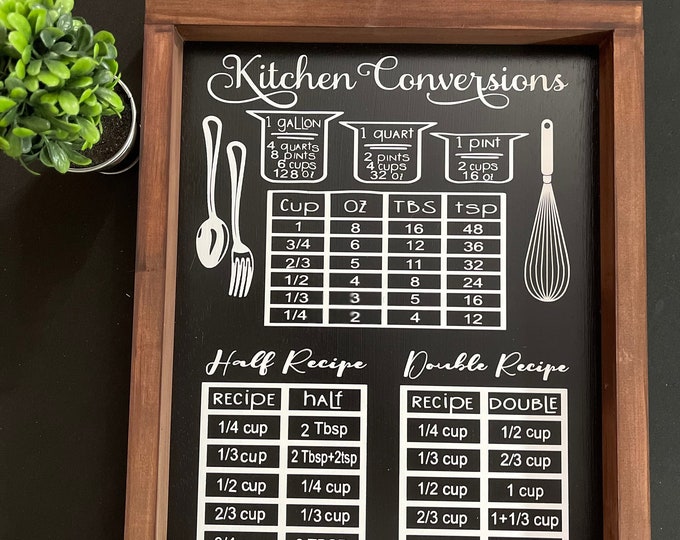 Kitchen Conversions
1 gallon
4 quarts
8 pints
6 cups
128 oz
1 quart
2 pints
4 cups
32 oz
1 pint
2 cups
16 oz
Cup oz TBS tsp
1 8 16 48
3/4 6 12 36
2/3 5 11 32
1/2 4 8 24
1/3 3 5 16
1/4 2 4 12
Half Recipe
Recipe half
1/4 cup 2 Tbsp
1/3 cup 2 Tbsp+2tsp
1/2 cup 1/4 cup
2/3 cup 1/3 cup
Double Recipe
Recipe Double
1/4 cup 1/2 cup
1/3 cup 2/3 cup
1/2 cup 1 cup
2/3 cup 1+1/3 cup